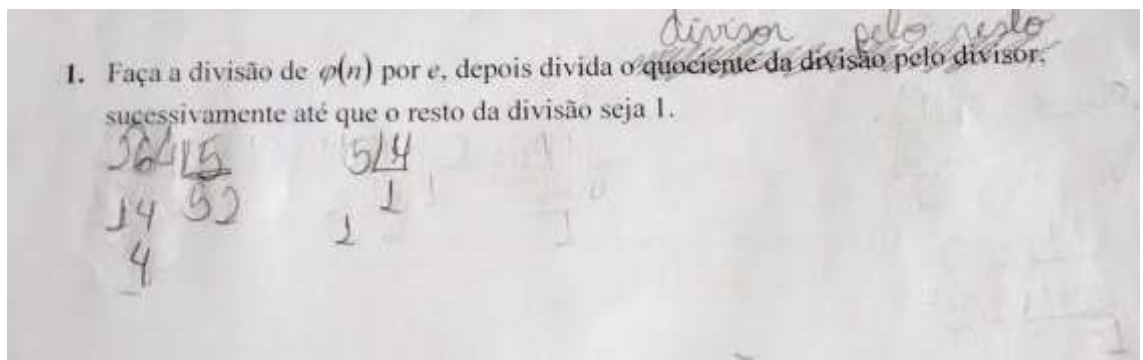 divisor pelo resto
1. Faça a divisão de φ(n) por e, depois divida o quociente da divisão pelo divisor,
sucessivamente até que o resto da divisão seja 1.
264 5 5 4
14 52 1
4 1